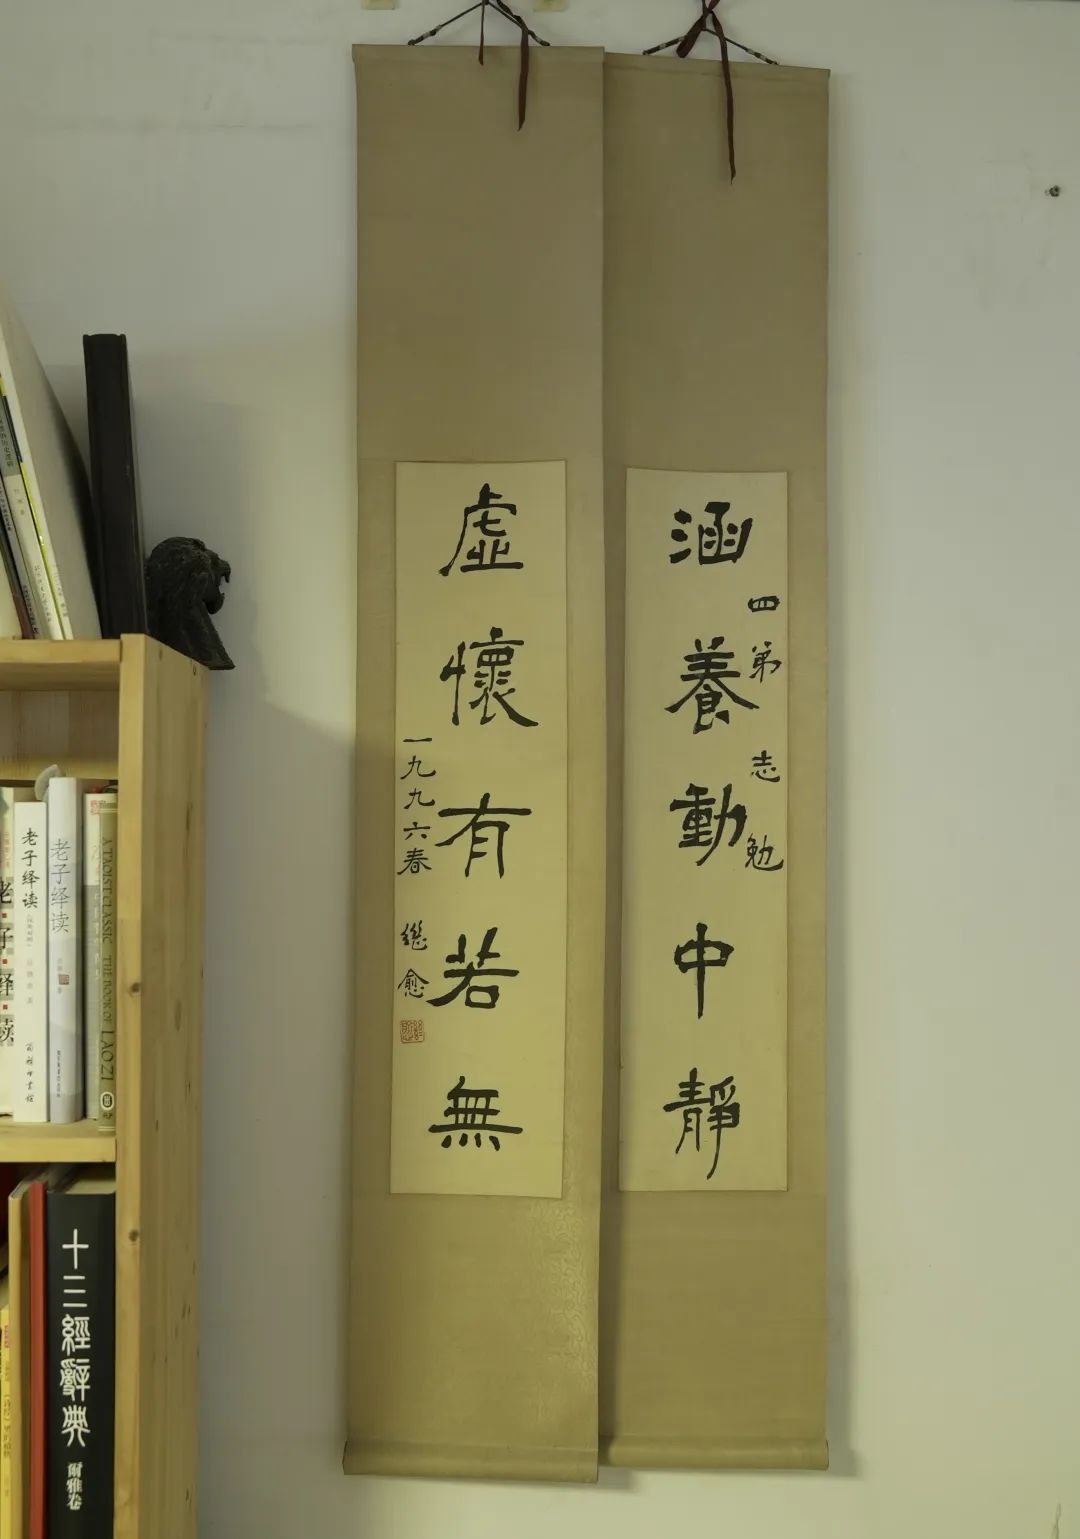 涵養動中靜
四弟 志勉
虛懷有若無
一九九六春 继愈
老子绎读
老子绎读
商務印書館
A TAOIST CLASSIC THE BOOK OF LAO ZI
老子绎读
十三經辭典
爾雅卷